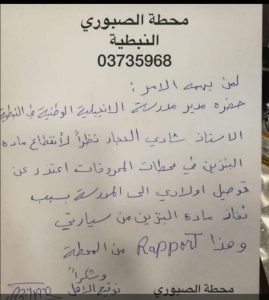 محطة الصبوري
النبطية
03735968
لمن يهمه الامر:
حضرة مدير مدرسة الانجيلية الوطنية في النبطية
الاستاذ شادي الحجار نظراً لأنقطاع مادة
البنزين في محطات المحروقات اعتذر عن
توصيل اولادي الى المدرسة بسبب
نفاذ مادة البنزين من سيارتي
وهذا Rapport من المحطة
وشكراً
توقيع الأهل
محطة الصبوري